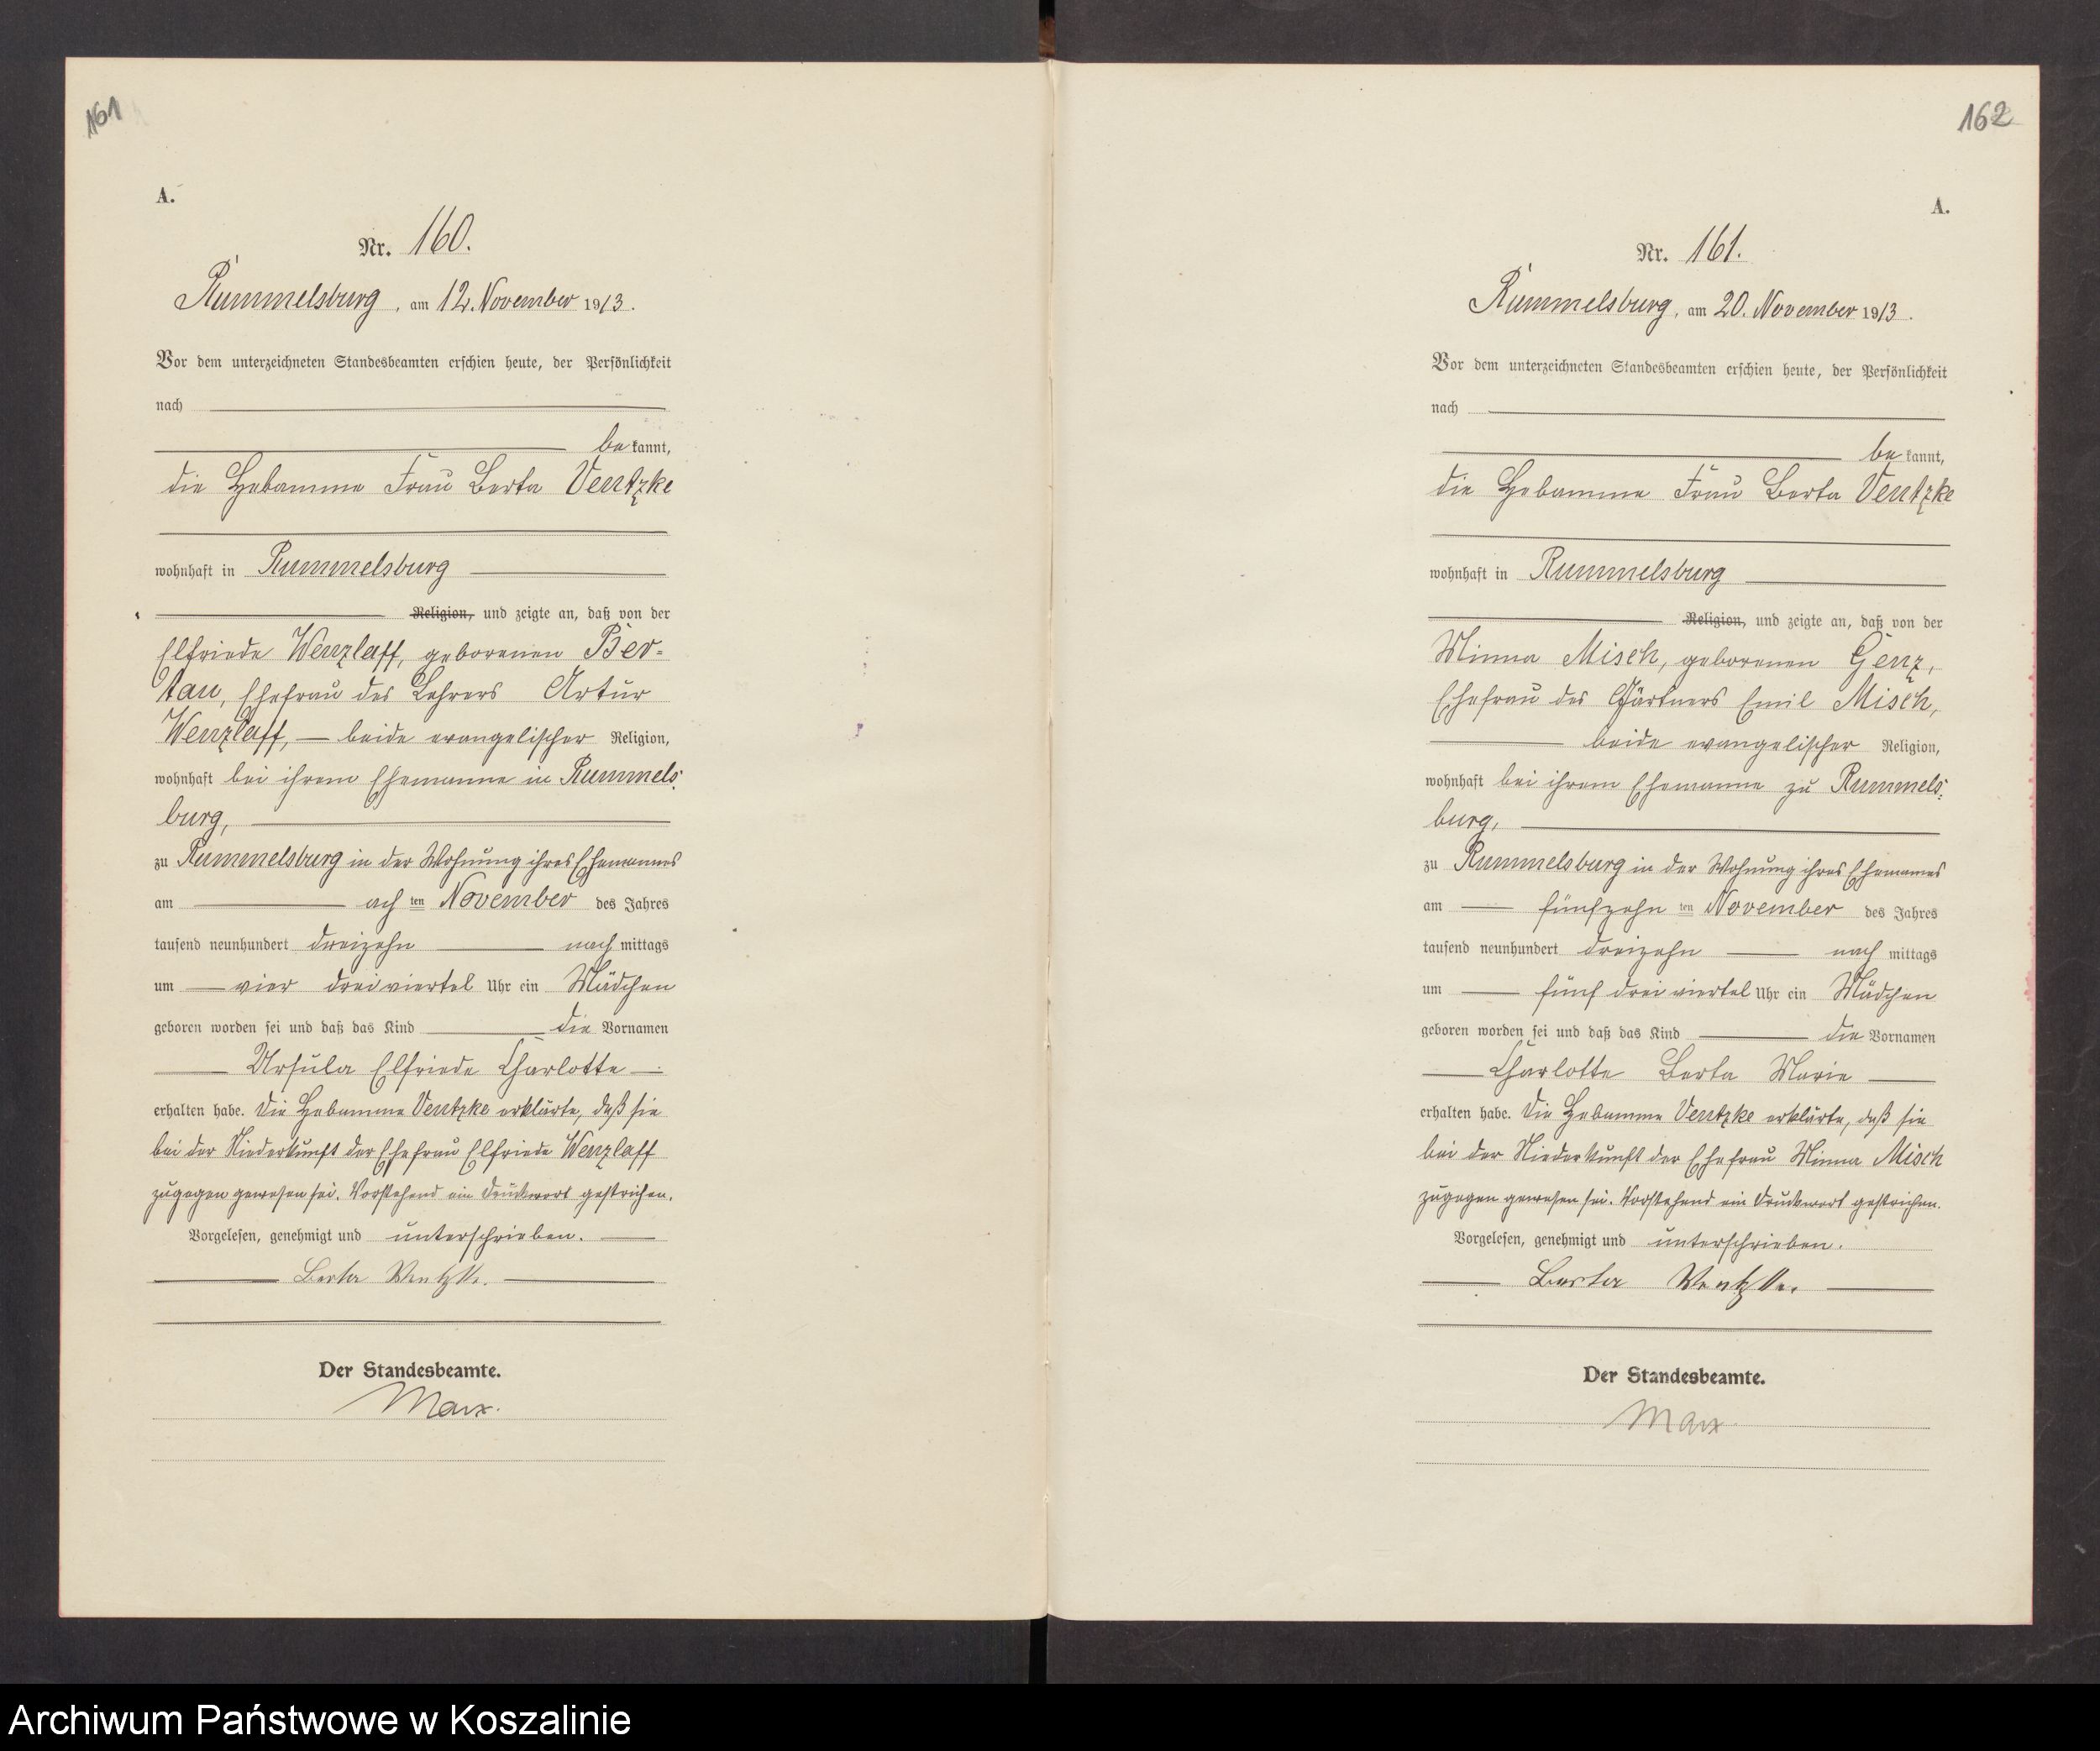 161
A.
Nr. 160.
Rummelsburg, am 12. November 1913.
Vor dem unterzeichneten Standesbeamten erschien heute, der Persönlichkeit
nach
bekannt,
die Hebamme Frau Berta Ventzke
wohnhaft in Rummelsburg
Religion, und zeigte an, daß von der
Elfriede Wenzlaff, geborenen Ber-
tau, Ehefrau des Lehrers Artur
Wenzlaff, — beide evangelischer Religion,
wohnhaft bei ihrem Ehemanne in Rummels-
burg,
zu Rummelsburg in der Wohnung ihres Ehemannes
am ach ten November des Jahres
tausend neunhundert dreizehn nachmittags
um vier dreiviertel Uhr ein Mädchen
geboren worden sei und daß das Kind die Vornamen
Ursula Elfriede Charlotte
erhalten habe. Die Hebamme Ventzke erklärte, daß sie
bei der Niederkunft der Ehefrau Elfriede Wenzlaff
zugegen gewesen sei. Vorstehend ein Druckwort gestrichen.
Vorgelesen, genehmigt und unterschrieben.
Berta Ventzke.
Der Standesbeamte.
Marx.
162
A.
Nr. 161.
Rummelsburg, am 20. November 1913.
Vor dem unterzeichneten Standesbeamten erschien heute, der Persönlichkeit
nach
bekannt,
die Hebamme Frau Berta Ventzke
wohnhaft in Rummelsburg
Religion, und zeigte an, daß von der
Minna Misch, geborenen Genz,
Ehefrau des Gärtners Emil Misch,
beide evangelischer Religion,
wohnhaft bei ihrem Ehemanne zu Rummels-
burg,
zu Rummelsburg in der Wohnung ihres Ehemannes
am fünfzehn ten November des Jahres
tausend neunhundert dreizehn nachmittags
um fünf dreiviertel Uhr ein Mädchen
geboren worden sei und daß das Kind die Vornamen
Charlotte Berta Marie
erhalten habe. Die Hebamme Ventzke erklärte, daß sie
bei der Niederkunft der Ehefrau Minna Misch
zugegen gewesen sei. Vorstehend ein Druckwort gestrichen.
Vorgelesen, genehmigt und unterschrieben.
Berta Ventzke.
Der Standesbeamte.
Marx.
Archiwum Państwowe w Koszalinie